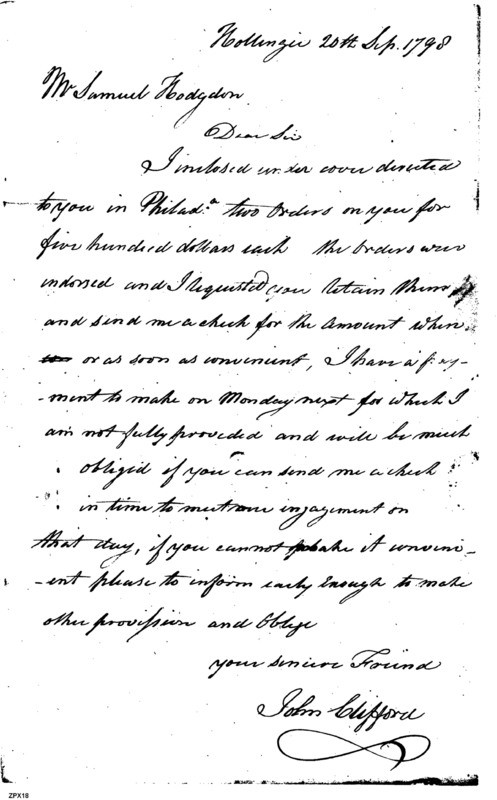 Nottingir 20th Sep. 1798
Mr Samuel Hodgdon
Dear Sir
I inclosed under cover directed
to you in Philada. two orders on you for
five hundred dollars each the orders were
indorsed and I requested you retain them
and send me a check for the amount when
or as soon as convenient, I have a pay-
-ment to make on Monday next for which I
am not fully provided and will be much
obligid if you can send me a check
in time to meet an ingagement on
that day, if you cannot make it conveni-
-ent please to inform early enough to make
other provission and Oblige
your sincere Friend
John Clifford
ZPX18